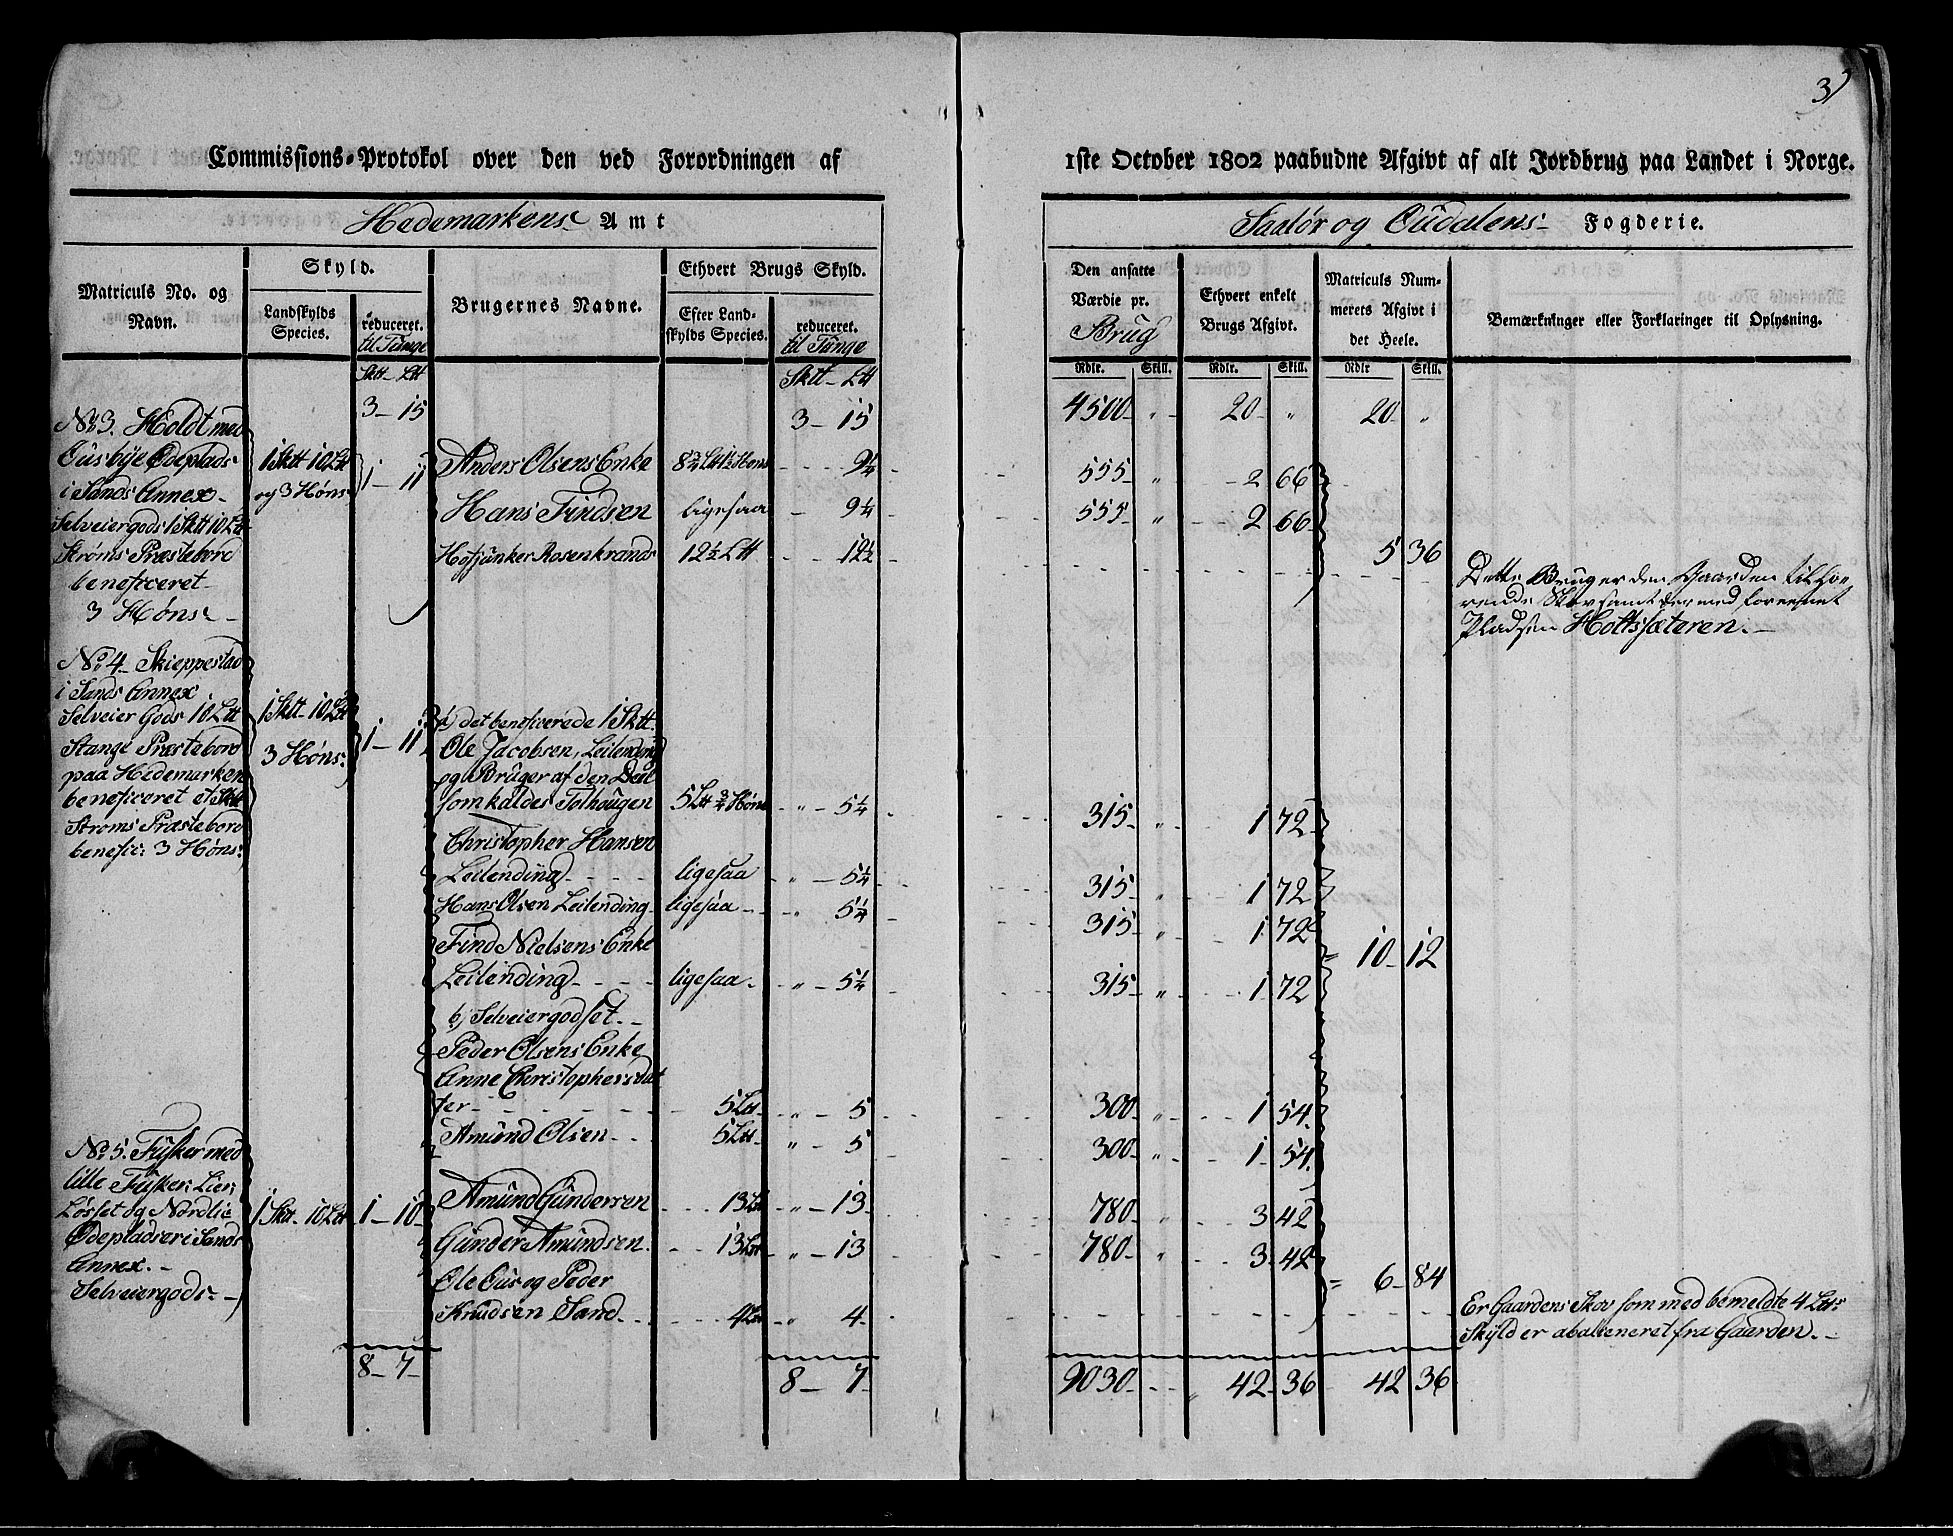 3)
Commissions-Protokol over den ved Forordningen af 1ste October 1802 paabudne Afgivt af alt Jordbrug paa Landet i Norge.
Hedemarkens Amt
Soelør og Oudalens Fogderie.
Matriculs No. og Navn.
Skyld.
Landskylds Species.
reduceret. til Tunge
Brugernes Navne.
Ethvert Brugs Skyld.
Efter Landskylds Species.
reduceret. til Tunge
Den ansatte Værdie pr. Brug
Ethvert enkelt Brugs Afgivt.
Matriculs Nummerets Afgivt i det Heele.
Bemærkninger eller Forklaringer til Oplysning.
Sktt - Ltt
Sktt - Ltt
Rdlr. Skill. Rdlr. Skill. Rdlr Skill.
3 - 15
3 - 15
4500 - " - 20 - " 20 - "
No. 3. Holdt med
Ousbÿe Ødeplads
i Sands Annex -
Selveiergods 1 Sktt 10 Ltt
Strøms Præstebord
beneficeret -
3 Høns -
1 Sktt 10 Ltt
og 3 Høns
1 - 11
Anders Olsens Enke 8¾ Ltt 1½ Høns - 9¼ 555 - " - 2 66
Hans Findsen ligesaa - 9¼ 555 - " - 2 66
Hofjunker Rosenkrands 12½ Ltt - 12½
5 36
Dette Brug er den Gaarden tilhø-
rende Skov samt dermed foreenet
Pladsen Holtssæteren. -
No. 4 - Skieppestad
i Sands Annex
Selveier Gods 10 Ltt
Stange Præstebord
paa Hedemarken
beneficeret et Sktt
Strøms Præstebord
benefic: 3 Høns:
1 Sktt - 10 Ltt
3 Høns:
1 - 11
a) det beneficerede 1 Sktt.
Ole Jacobsen, Leilending
og Bruger af den Deel
som kaldes Tolhougen 5 Ltt ¾ Høns " - 5¼ 315 - " - 1 72
Christopher Hansen
Leilending ligesaa " - 5¼ 315 - " - 1 72
Hans Olsen Leilending ligesaa " - 5¼ 315 - " - 1 72
Find Nielsens Enke
Leilending ligesaa " - 5¼ 315 - " - 1 72
10 - 12
b) Selveiergodset. -
Peder Olsens Enke
Anne Christophersdat
ter 5 Ltt " - 5 300 - " - 1 54
Amund Olsen 5 Ltt " - 5 300 - " - 1 54
No. 5. Fÿsker med
lille Fÿsker, Lier,
Løsset og Nordlie
Ødepladser i Sands
Annex. -
Selveiergods -
1 Sktt - 10 Ltt
1 - 10
Amund Gundersen 13 Ltt " - 13 780 - " - 3 42
Gunder Amundsen 13 Ltt " - 13 780 - " - 3 42
Ole Ous og Peder
Knudsen Sand 4 Ltt " 4
6 - 84
Er Gaardens Skov som med bemeldte 4 Ltt:
Skÿld er abalieneret fra Gaarden. -
8 - 7
8 - 7
9030 - 42 - 36 42 36